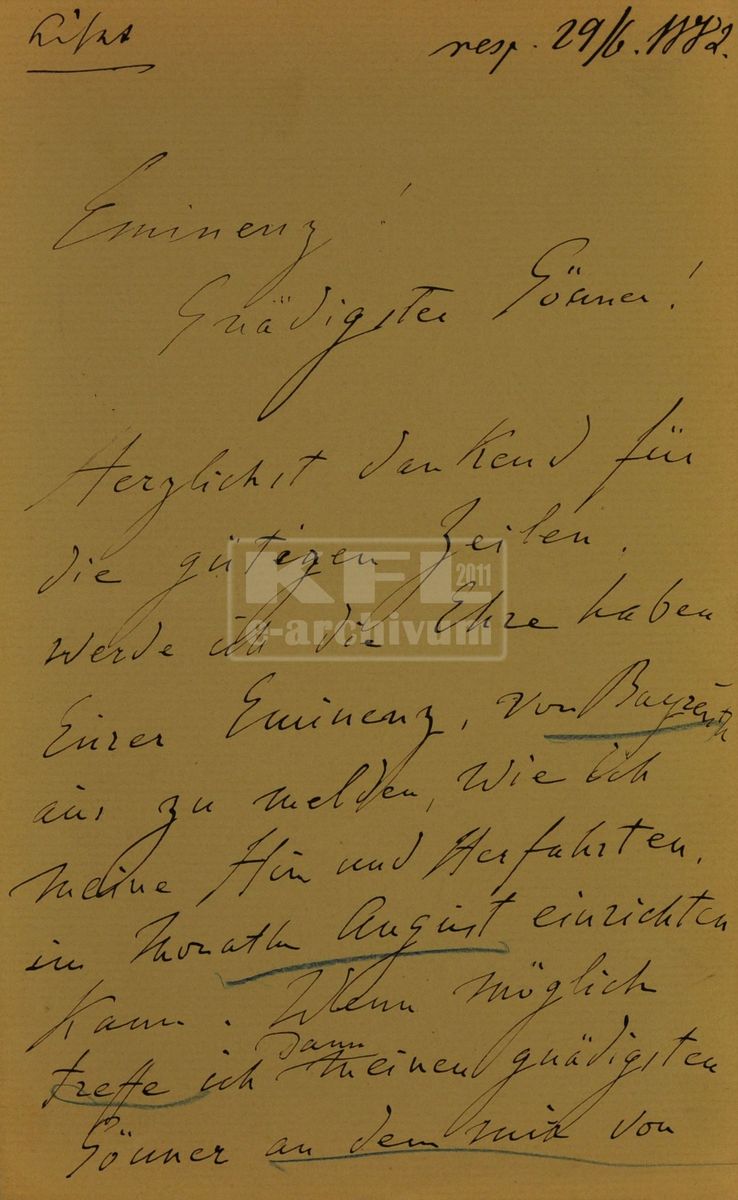 Liszt
resp. 29/6. 1882.
Eminenz!
Gnädigster Gönner!
Herzlichst dankend für
die gütigen Zeilen,
werde ich die Ehre haben
Eurer Eminenz, von Bayreuth
aus zu melden, wie ich
meine Hin und Herfahrten,
im Monath August einrichten
kann. Wenn möglich
treffe ich dann meinen gnädigsten
Gönner an dem mir von
KFL 2011
e-archivum